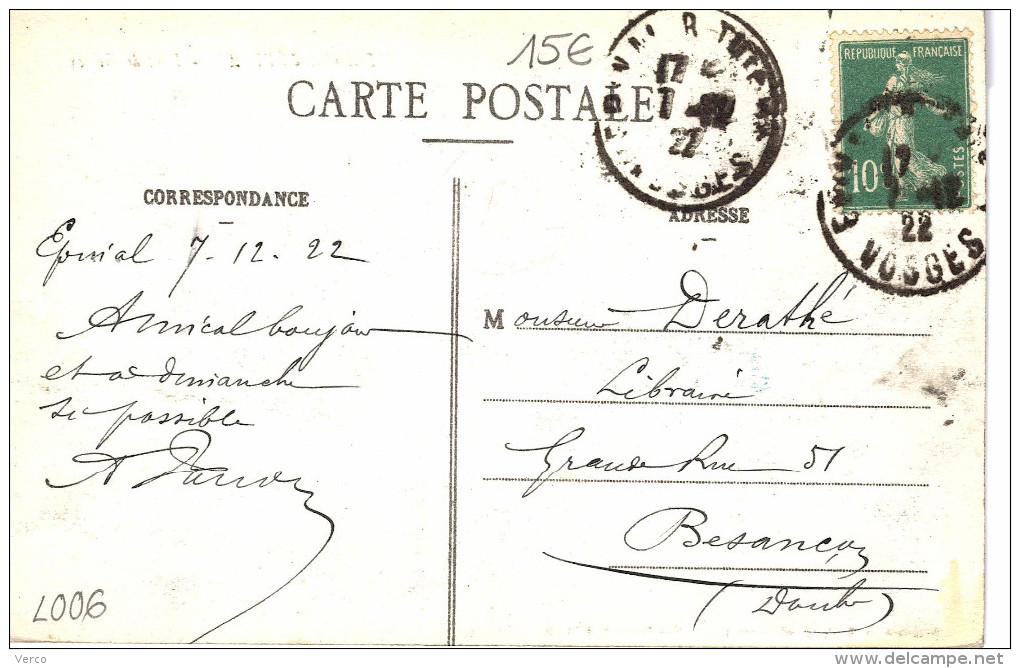 15€
CARTE POSTALE
RÉPUBLIQUE FRANÇAISE
10
POSTES
17
7 - 12
22
VOSGES
17
22
VOSGES
CORRESPONDANCE
ADRESSE
Epinal 7-12-22
Amical bonjour
et à dimanche
si possible
Monsieur Derathé
Libraire
Grande Rue 51
Besançon
(Doubs)
L006
Verco
www.delcampe.net